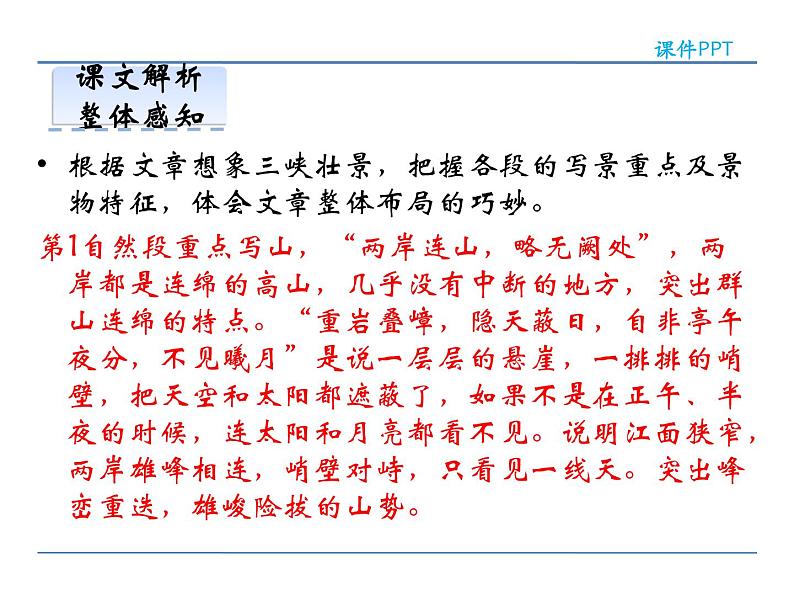 课件PPT
课文解析
整体感知
• 根据文章想象三峡壮景，把握各段的写景重点及景
物特征，体会文章整体布局的巧妙。
第1自然段重点写山，“两岸连山，略无阙处”，两
岸都是连绵的高山，几乎没有中断的地方，突出群
山连绵的特点。“重岩叠嶂，隐天蔽日，自非亭午
夜分，不见曦月”是说一层层的悬崖，一排排的峭
壁，把天空和太阳都遮蔽了，如果不是在正午、半
夜的时候，连太阳和月亮都看不见。说明江面狭窄，
两岸雄峰相连，峭壁对峙，只看见一线天。突出峰
峦重迭，雄峻险拔的山势。